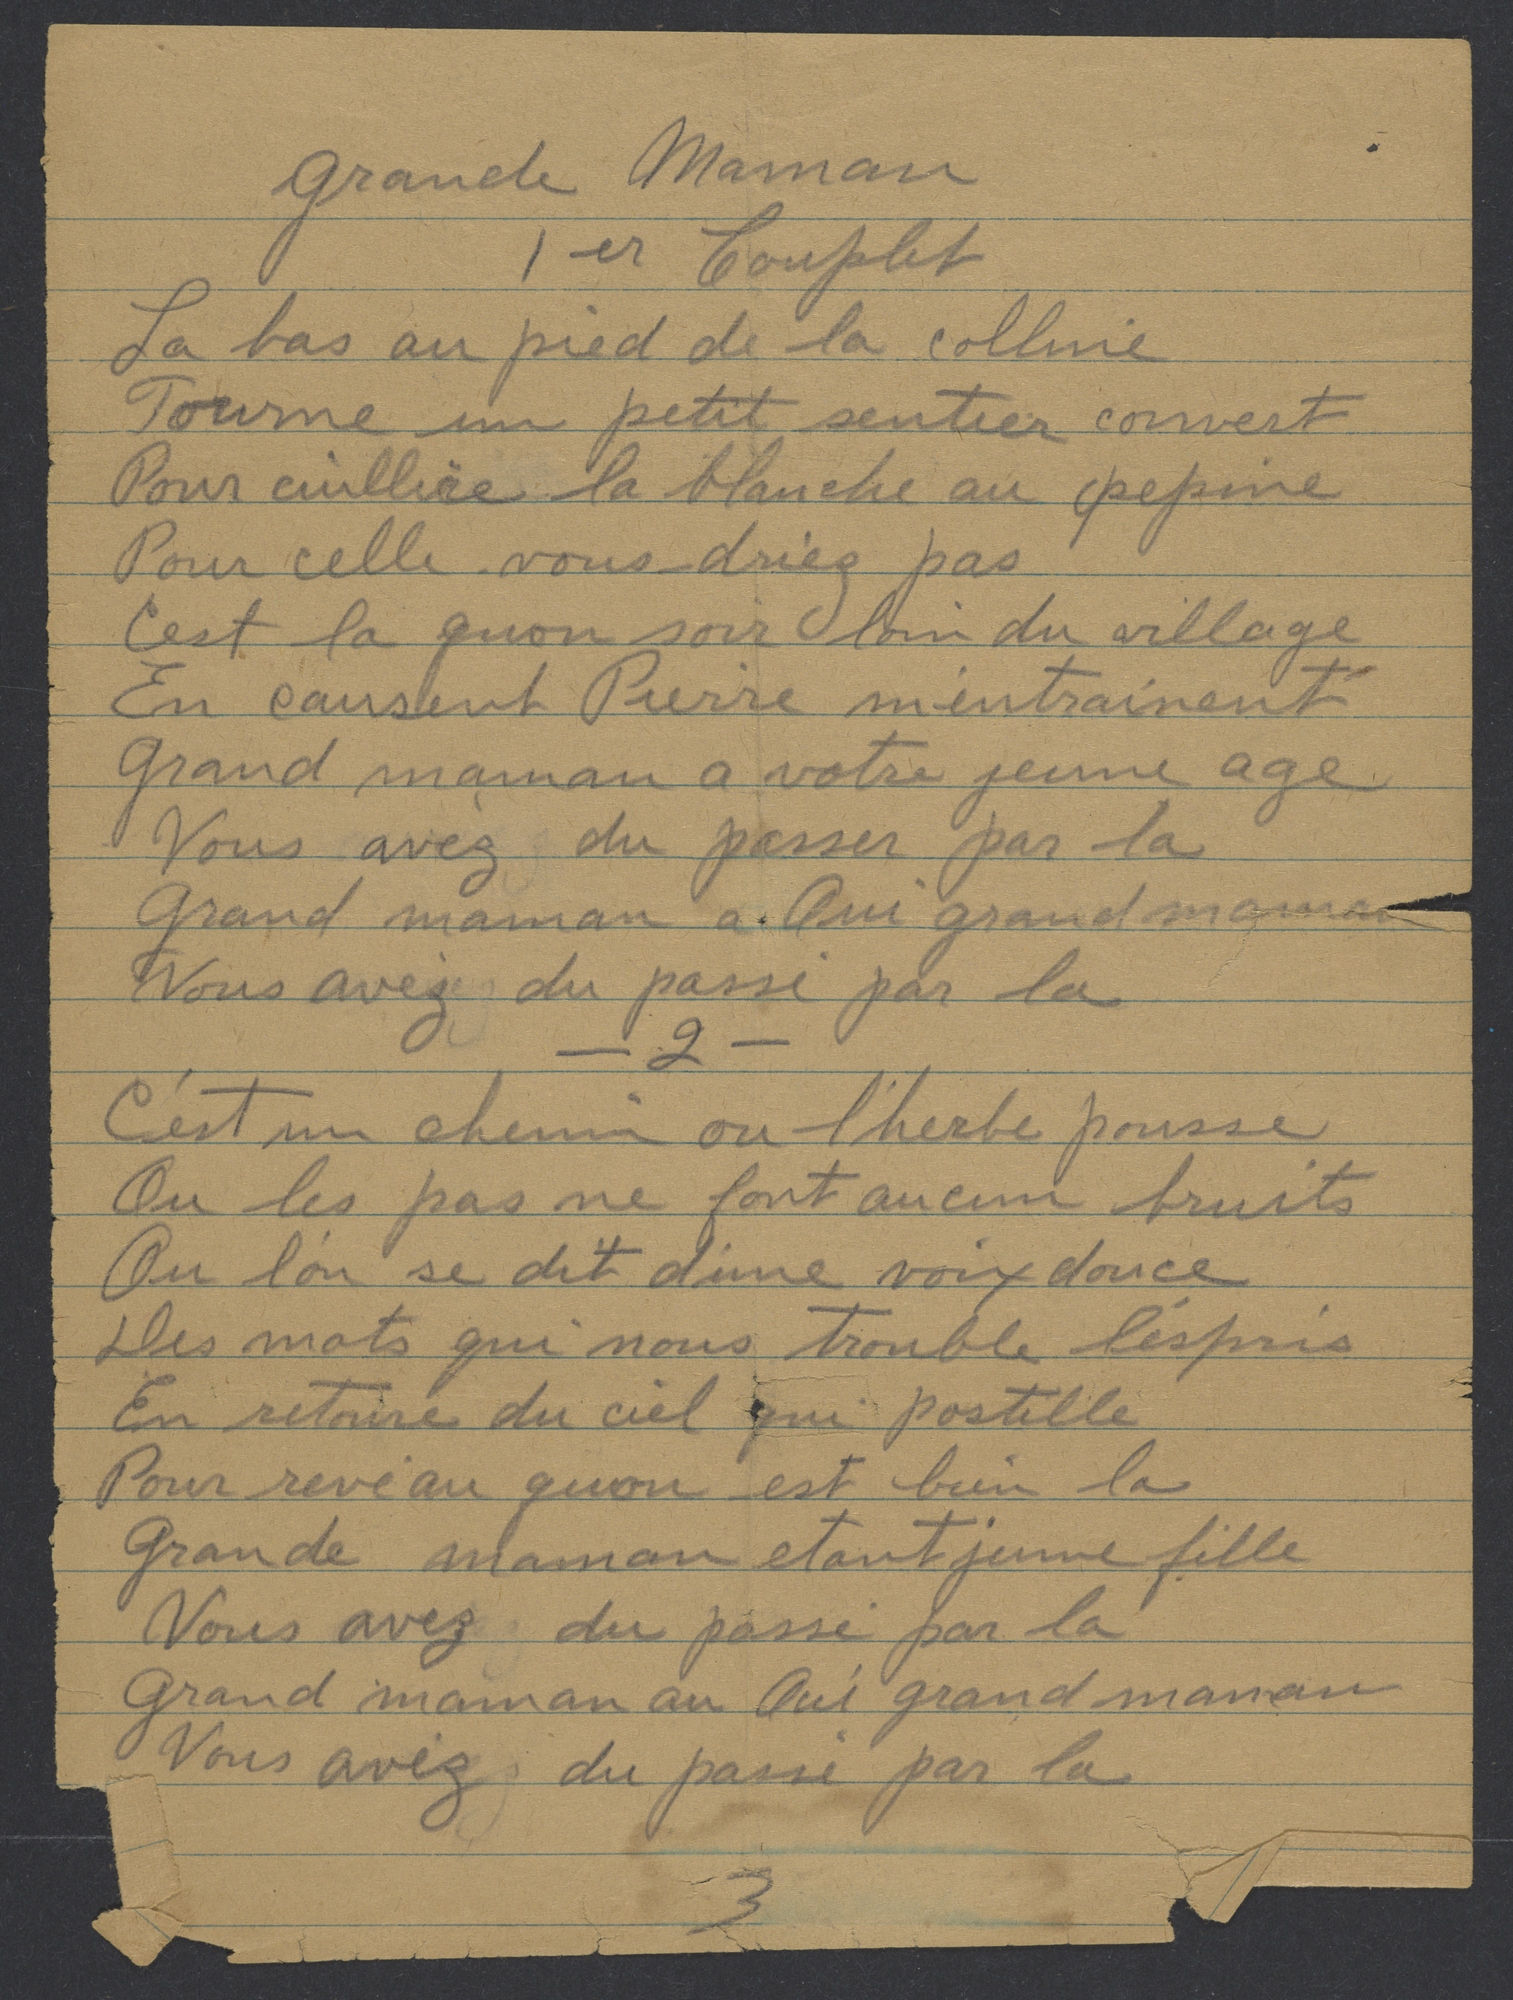 Grande Maman
1 er Couplet
La bas au pied de la colline
Tourne un petit sentier couvert
Pour cuillire la blanche au pepine
Pour celle vous driez pas
C'est la quon soir loin du village
En causent Pierre m'entrainent
Grand maman a votre jeune age
Vous avez du passer par la
Grand maman a Oui grand maman
Vous avez du passé par la
— 2 —
C'est un chemin ou l'herbe pousse
Ou les pas ne font aucun bruits
Ou l'on se dit d'une voix douce
Des mots qui nous trouble l'espris
En retoure du ciel qui postille
Pour reveau quon est bien la
Grande maman etant jeune fille
Vous avez du passé par la
Grand maman au Oui grand maman
Vous avez du passé par la
3